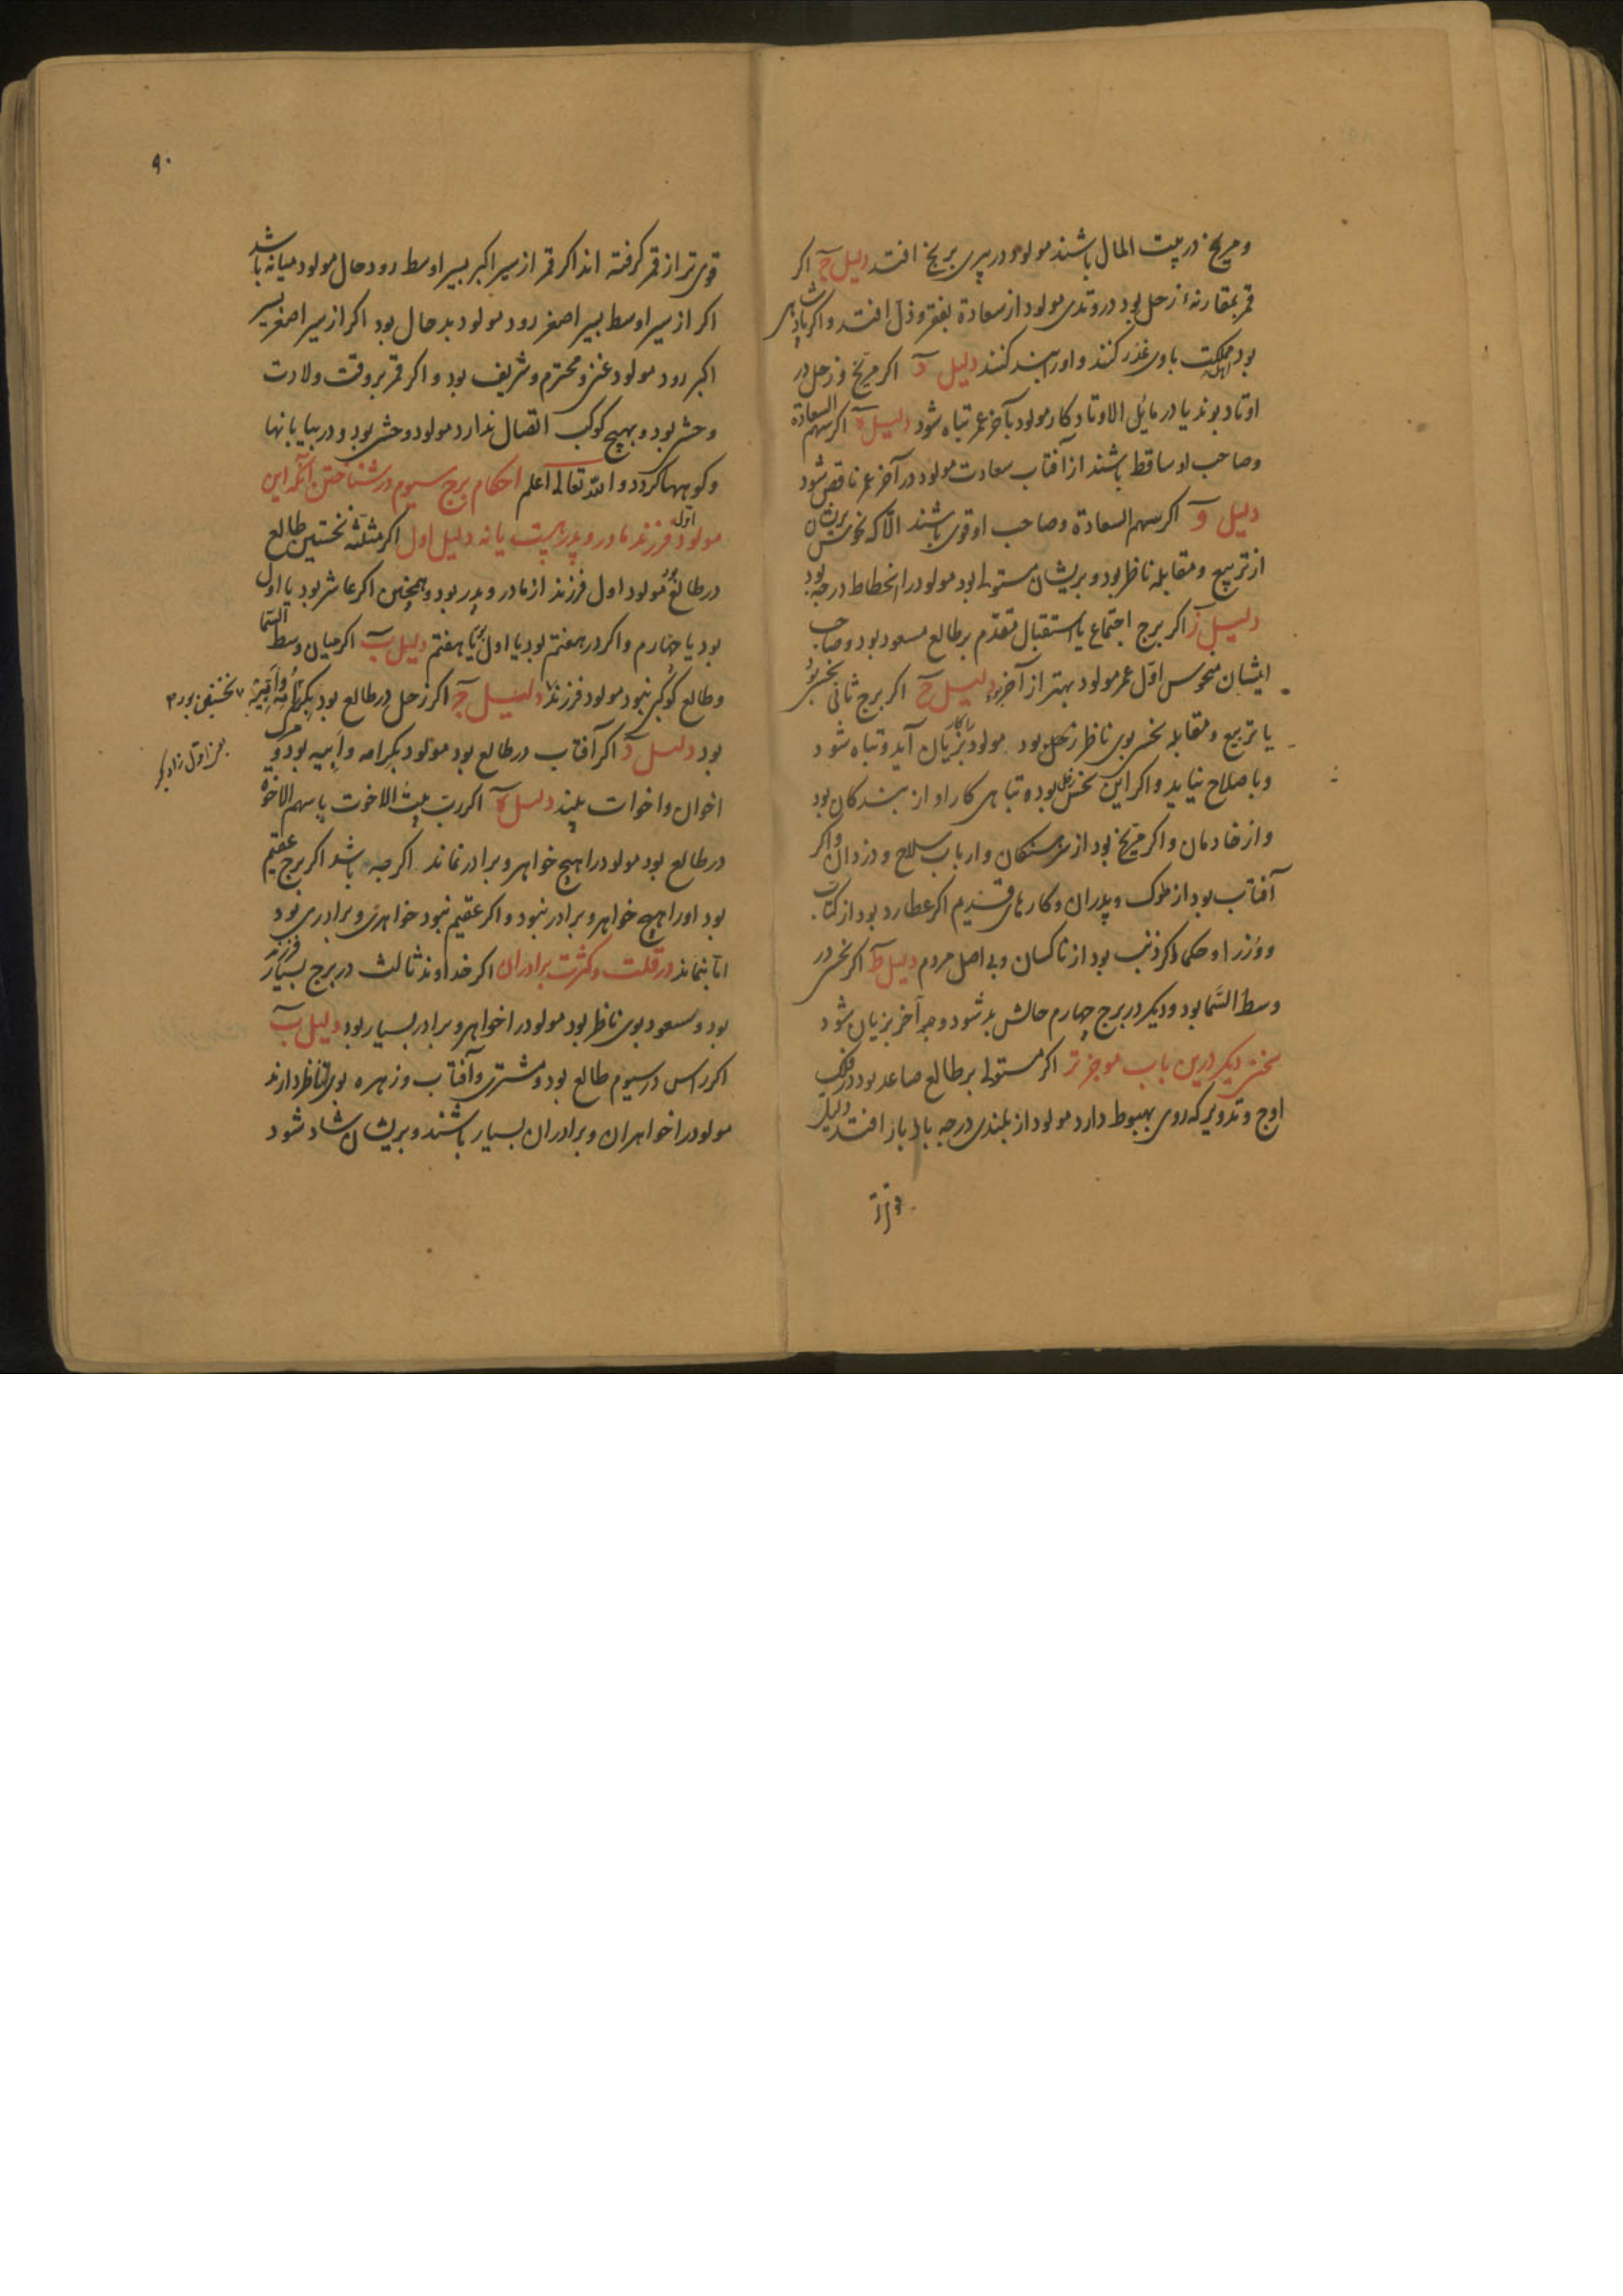 و مریخ در بیت المال باشند مولود در پیری برنج افتد دلیل ج اکر
قمر بمقارنهٔ زحل بود در وتدی مولود از سعادة بفقر و ذل افتد و اکر پادشاهی
بود اهل مملکت با وی غدر کنند و اورا بند کنند دلیل د اکر مریخ و زحل در
اوتاد بوند یا در مائل الاوتاد کار مولود بآخر عمر تباه شود دلیل ه اکر سهم السعادة
و صاحب او ساقط باشند از آفتاب سعادت مولود در آخر عمر ناقص شود
دلیل و اکر سهم السعادة و صاحب او قوی باشند الا که نحوس بریشان
از تربیع و مقابله ناظر بود و بریشان مستولی بود مولود را انحطاط درجه بود
دلیل ز اکر برج اجتماع یا استقبال مقدم بر طالع مسعود بود و صاحب
ایشان منحوس اول عمر مولود بهتر از آخر بود دلیل ح اکر برج ثانی نحس بود
یا تربیع و مقابله نحس بوی ناظر زحل بود مولود را کار بزیان آید و تباه شود
و با صلاح نیاید و اکر این نحس زحل بوده تباهی کار او از بندکان بود
و از خادمان و اکر مریخ بود از سرهنکان و ارباب سلاح و دزدان و اکر
آفتاب بود از ملوک و پدران و کارهای قدیم اکر عطارد بود از کتاب
و وزرا و حکما اکر ذنب بود از ناکسان و بی اصل مردم دلیل ط اکر نحس در
وسط السما بود و دیکر در برج چهارم حالش بد شود و به آخر بزیان شود
سخن دیکر درین باب موجزتر اکر مستولی بر طالع صاعد بود در فلک
اوج و تدویر که روی بهبوط دارد مولود از بلندی درجه باز افتد دلیل
قوی‌تر
۹۰
قوی‌تر از قمر کرفته اند اکر قمر از سیر اکبر بسیر اوسط رود حال مولود میانه باشد
اکر از سیر اوسط بسیر اصغر رود مولود بد حال بود اکر از سیر اصغر بسیر
اکبر رود مولود عزیز و محترم و شریف بود و اکر قمر بر وقت ولادت
وحشی بود و بهیچ کوکب اتصال ندارد مولود وحشی بود و در بیابانها
و کوهها کردد و الله تعالی اعلم احکام برج سیوم در شناختن آنکه این
مولود اول فرزند مادر و پدر هست یا نه دلیل اول اکر مثلثه نخستین طالع
در طالع بود مولود اول فرزند از مادر و پدر بود و همچنین اکر عاشر بود یا اول
بود یا چهارم و اکر در هفتم بود یا اول بود یا هفتم دلیل ب اکر میان وسط السما
و طالع کوکبی نبود مولود فرزند دلیل ج اکر زحل در طالع بود بکر امه و ابیه
بود دلیل د اکر آفتاب در طالع بود مولود بکر امه و ابیه بود و مرک
اخوان و اخوات بیند دلیل ه اکر رب بیت الاخوت یا سهم الاخوة
در طالع بود مولود را هیچ خواهر و برادر نماند اکر چه باشد اکر برج عقیم
بود اورا هیچ خواهر و برادر نبود و اکر عقیم نبود خواهری و برادری بود
اما بنماند در قلت و کثرت برادران اکر خداوند ثالث در برج بسیار فرزند
بود و مسعود بوی ناظر بود مولود را خواهر و برادر بسیار بود دلیل ب
اکر راس در سیوم طالع بود و مشتری و آفتاب و زهره بوی تناظر دارند
مولود را خواهران و برادران بسیار باشند و بریشان شاد شود
نخستین بود
یعنی اول زاد بکر